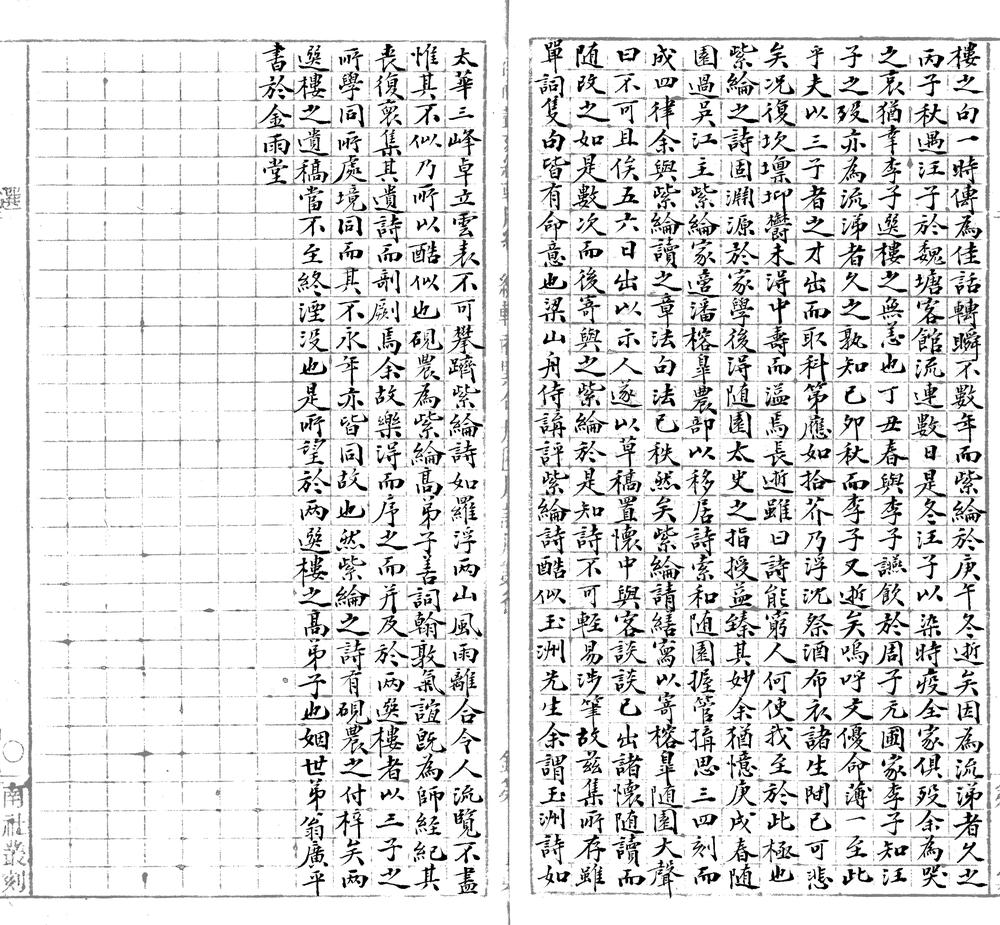 樓之句一時傳為佳話轉瞬不數年而紫綸於庚午冬逝矣因為流涕者久之
丙子秋遇汪子於魏塘客館流連數日是冬汪子以染時疫全家俱歿余為哭
之哀猶幸李子選樓之無恙也丁丑春與李子讌飲於周子元圃家李子知汪
子之歿亦為流涕者久之孰知己卯秋而李子又逝矣嗚呼文優命薄一至此
乎夫以三子者之才出而取科第應如拾芥乃浮沉祭酒布衣諸生間已可悲
矣况復坎壈抑鬱未得中壽而溘焉長逝雖曰詩能窮人何使我至於此極也
紫綸之詩固淵源於家學後得随園太史之指授益臻其妙余猶憶庚戌春随
園過吳江主紫綸家適潘榕皐農部以移居詩索和随園握管搆思三四刻而
成四律余與紫綸讀之章法句法已秩然矣紫綸請繕寫以寄榕皐随園大聲
曰不可且俟五六日出以示人遂以草稿置懷中與客談談已出諸懷随讀而
随改之如是數次而後寄與之紫綸於是知詩不可輕易涉筆故兹集所存雖
單詞隻句皆有命意也梁山舟侍講評紫綸詩酷似玉洲先生余謂玉洲詩如
太華三峰卓立雲表不可攀躋紫綸詩如羅浮兩山風雨離合令人流覽不盡
惟其不似乃所以酷似也硯農為紫綸高弟子善詞翰敦氣誼既為師經紀其
喪復裒集其遺詩而剞劂焉余故樂得而序之而并及於兩選樓者以三子之
所學同所處境同而其不永年亦皆同故也然紫綸之詩有硯農之付梓矣兩
選樓之遺稿當不至終湮没也是所望於兩選樓之高弟子也姻世弟翁廣平
書於金雨堂
選
南社叢刻